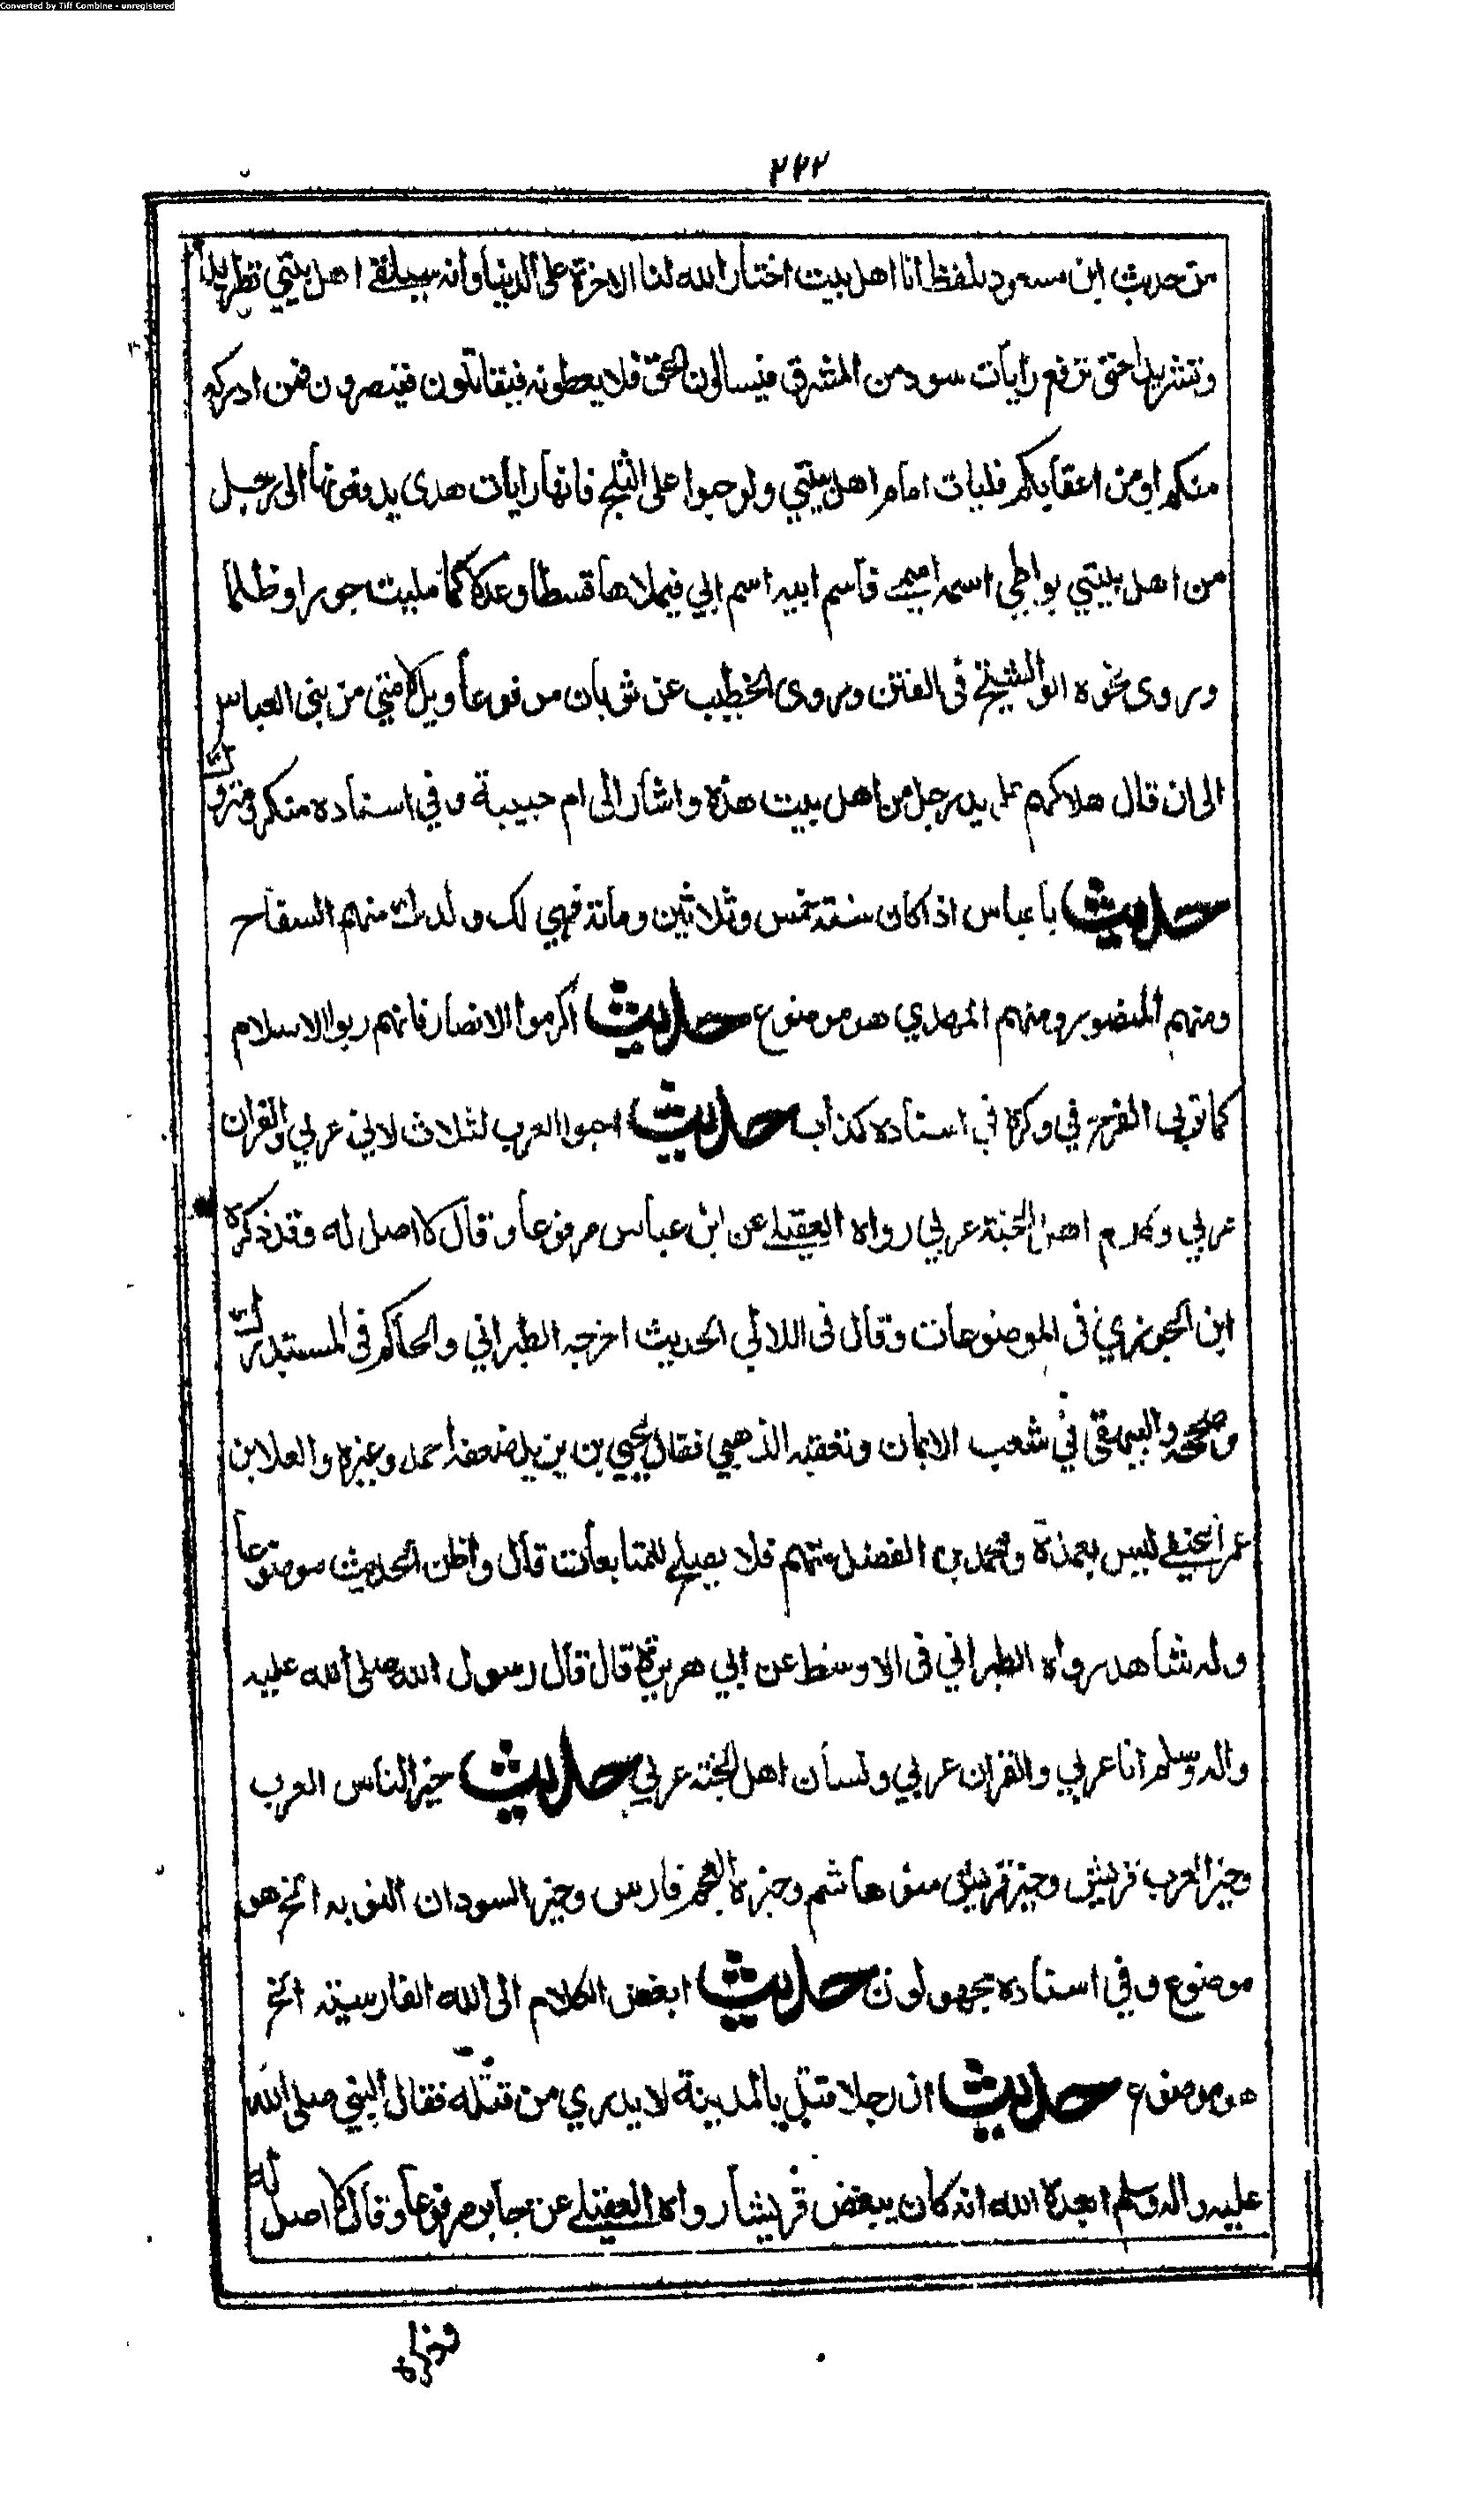 Converted by Tiff Combine - unregistered
٢٢٢
من حديث ابن مسعود بلفظ انا اهل بيت اختار الله لنا الاخرة على الدنيا وانه سيلقى اهل بيتي تطريدا
وتشريدا حتى ترفع رايات سود من المشرق فيسالون الحق فلا يعطونه فيقاتلون فينصرون فمن ادركه
منكم او من اعقابكم فليات امام اهل بيتي ولو حبوا على الثلج فانها رايات هدى يدفعونها الى رجل
من اهل بيتي يواطي اسمه اسمي فاسم ابيه اسم ابي فيملاها قسطا وعدلا كما ملئت جورا وظلما
وروى نحوه ابو الشيخ في الفتن وروى الخطيب عن ثوبان مرفوعا ويل لامتي من بني العباس
الى ان قال هلاكهم على يد رجل من اهل بيت هذه واشار الى ام حبيبة وفي اسناده منكر ومتروك
حديث يا عباس اذا كان سنة خمس وثلاثين ومائة فهي لك ولولدك منهم السفاح
ومنهم المنصور ومنهم المهدي هو موضوع حديث اكرموا الانصار فانهم ربوا الاسلام
كما يربى الفرخ في وكره في اسناده كذاب حديث احبوا العرب لثلاث لاني عربي والقران
عربي وكلام اهل الجنة عربي رواه العقيلي عن ابن عباس مرفوعا وقال لا اصل له وقد ذكره
ابن الجوزي في الموضوعات وقال في اللالي الحديث اخرجه الطبراني والحاكم في المستدرك
وصححه والبيهقي في شعب الايمان وتعقبه الذهبي فقال يحيى بن يزيد ضعفه احمد وغيره والعلا بن
عمر الحنفي ليس بعمدة ومحمد بن الفضل متهم فلا يصلح للمتابعات قال واظن الحديث موضوعا
وله شاهد رواه الطبراني في الاوسط عن ابي هريرة قال قال رسول الله صلى الله عليه
واله وسلم انا عربي والقران عربي ولسان اهل الجنة عربي حديث خير الناس العرب
وخير العرب قريش وخير قريش بنو هاشم وخير العجم فارس وخير السودان النوبه الخ هو
موضوع وفي اسناده مجهولون حديث ابغض الكلام الى الله الفارسية الخ
هو موضوع حديث ان رجلا قتل بالمدينة لا يدري من قتله فقال النبي صلى الله
عليه واله وسلم ابعده الله انه كان يبغض قريشا رواه العقيلي عن جابر مرفوعا وقال لا اصل له